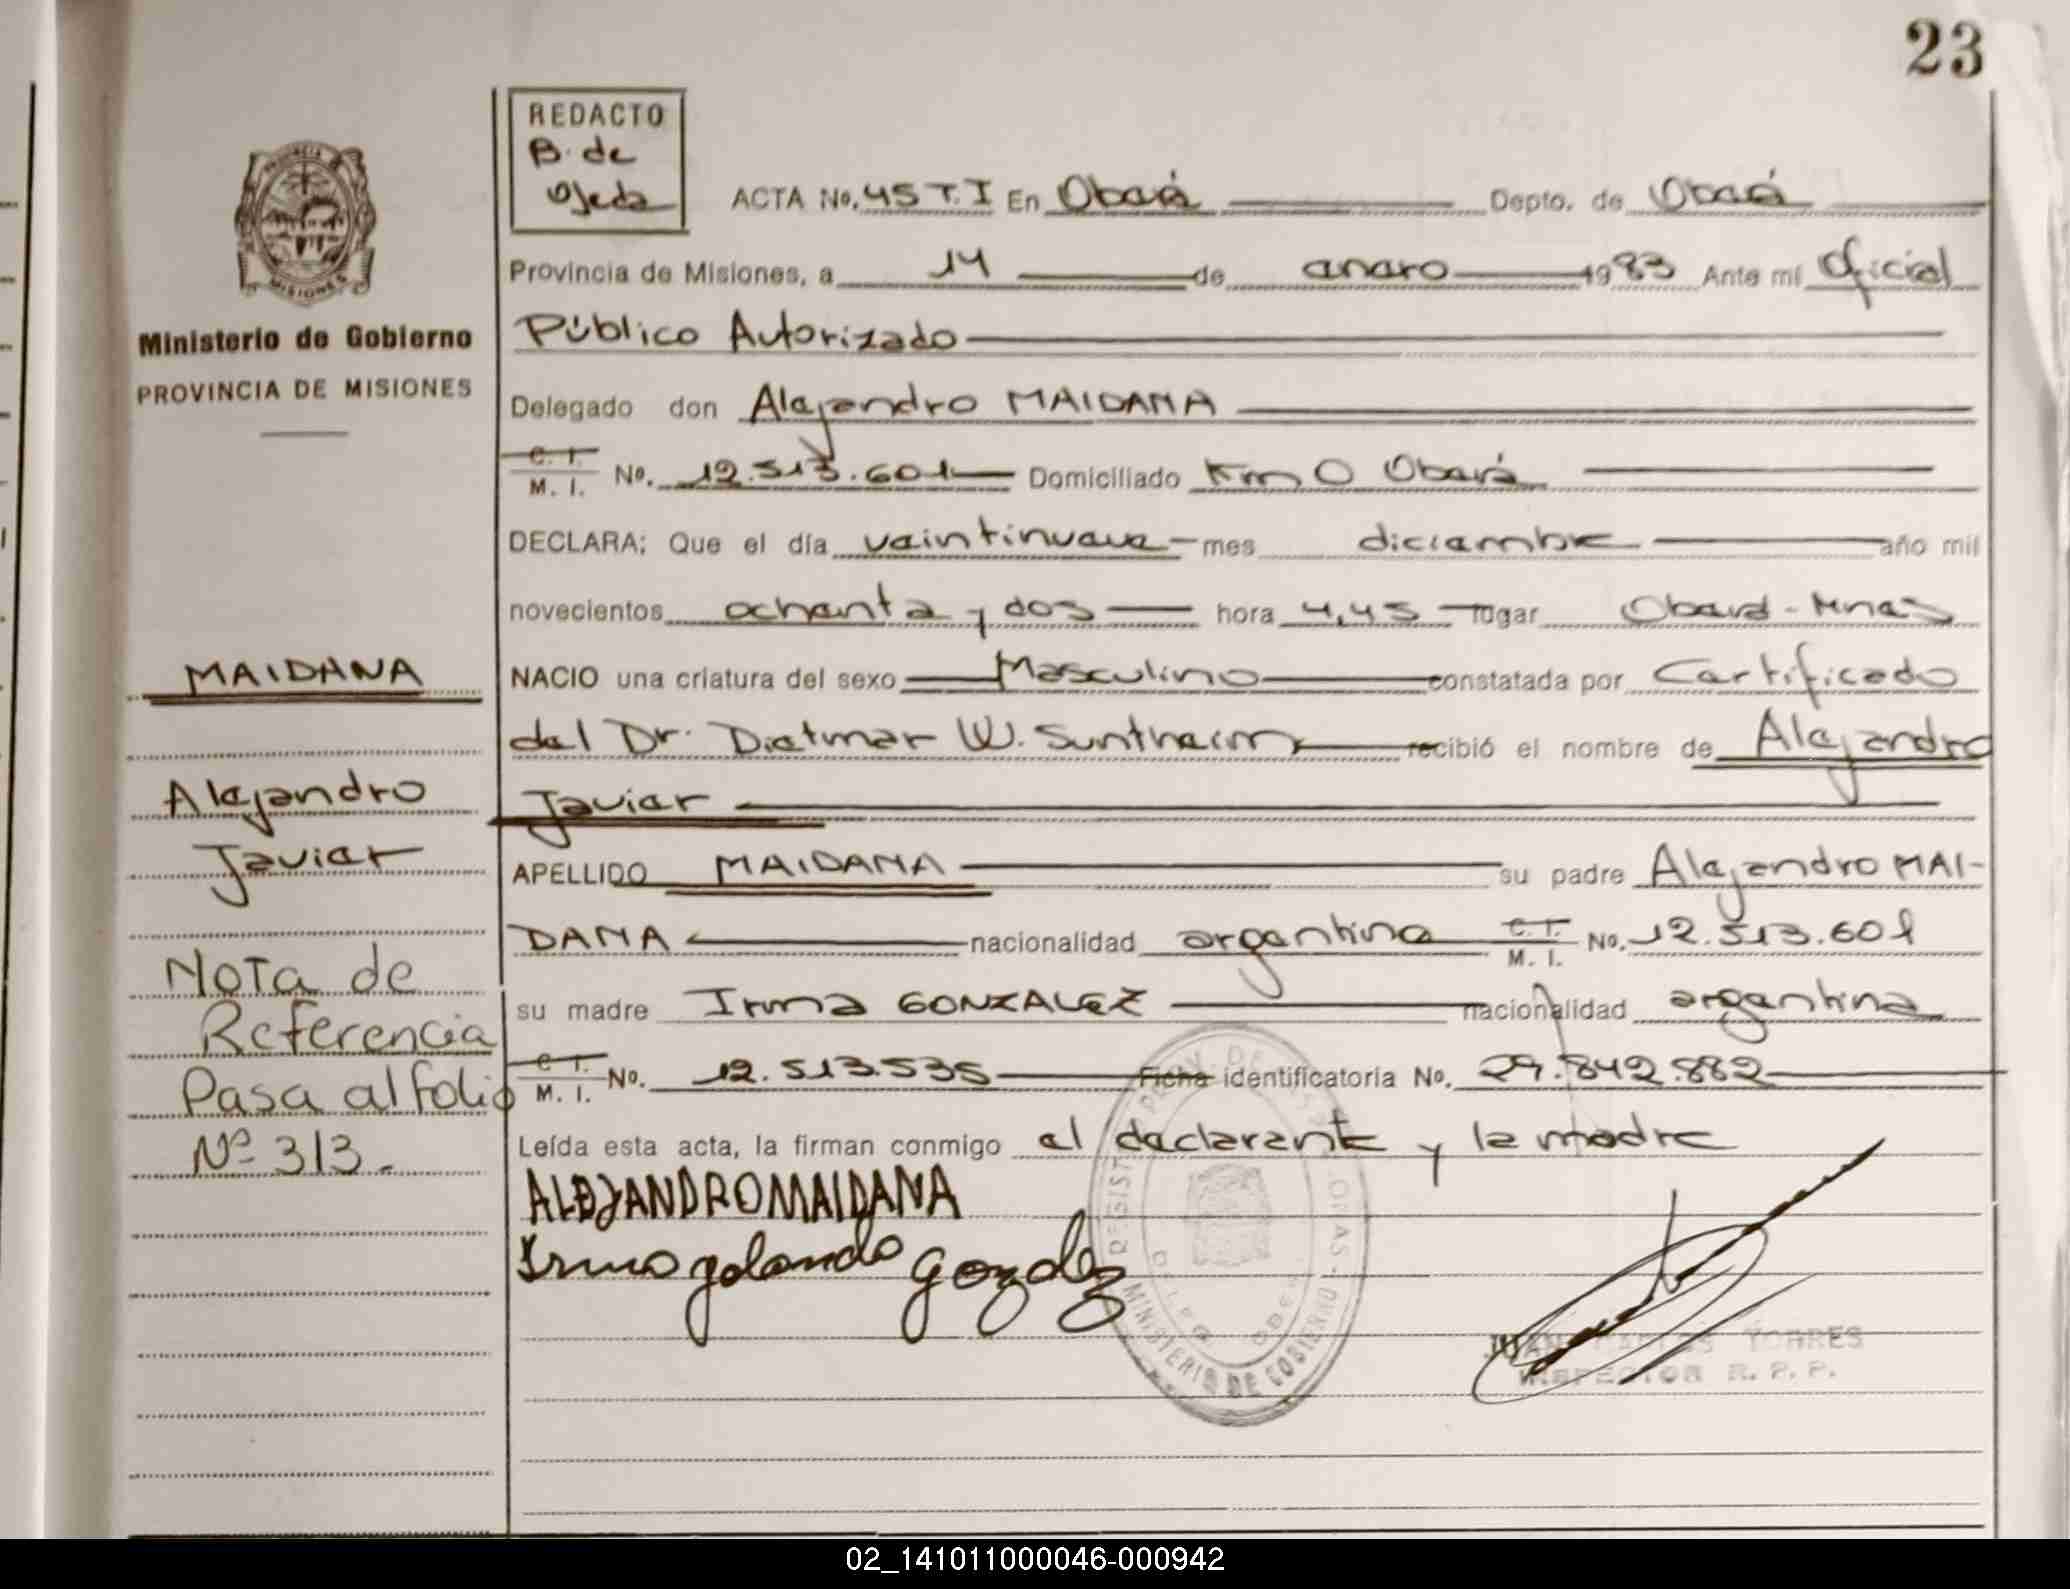 23
REDACTO
B. de
Ojeda
ACTA No. 45 T. I En Oberá Depto. de Oberá
Provincia de Misiones, a 14 de enero 1983 Ante mí Oficial
Público Autorizado
Delegado don Alejandro MAIDANA
C. I. M. I. No. 12.513.601 Domiciliado Km 0 Oberá
DECLARA; Que el día veintinueve mes diciembre año mil
novecientos ochenta y dos hora 4,45 lugar Oberá - Mnes
NACIO una criatura del sexo Masculino constatada por Certificado
del Dr. Dietmar W. Suntheim recibió el nombre de Alejandro
Javier
APELLIDO MAIDANA su padre Alejandro MAI-
DANA nacionalidad argentina C. I. M. I. No. 12.513.601
su madre Irma GONZALEZ nacionalidad argentina
C. I. M. I. No. 12.513.535 Ficha identificatoria No. 29.842.882
Leída esta acta, la firman conmigo el declarante y la madre
ALEJANDRO MAIDANA
Irma yolanda gonzalez
JUAN CARLOS TORRES
INSPECTOR R. P. P.
PROVINCIA
MISIONES
Ministerio de Gobierno
PROVINCIA DE MISIONES
MAIDANA
Alejandro
Javier
Nota de
Referencia
Pasa al folio
Nº 313.-
MINISTERIO DE GOBIERNO
02_141011000046-000942